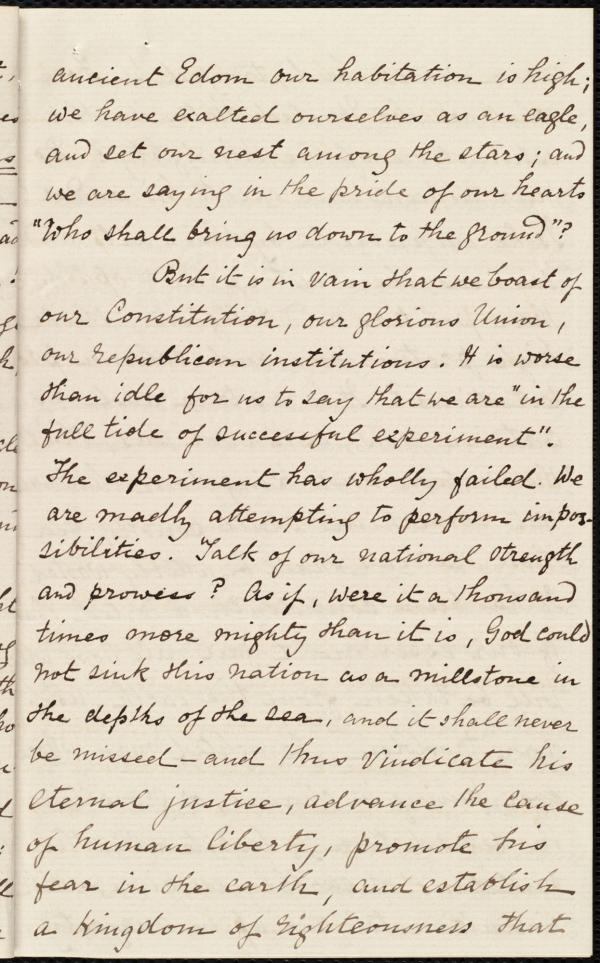 ancient Edom our habitation is high;
we have exalted ourselves as an eagle,
and set our nest among the stars; and
we are saying in the pride of our hearts
"Who shall bring us down to the ground"?
But it is in vain that we boast of
our Constitution, our glorious Union,
our republican institutions. It is worse
than idle for us to say that we are "in the
full tide of successful experiment".
The experiment has wholly failed. We
are madly attempting to perform impos-
sibilities. Talk of our national strength
and prowess? As if, were it a thousand
times more mighty than it is, God could
not sink this nation as a millstone in
the depths of the sea, and it shall never
be missed – and thus vindicate his
eternal justice, advance the cause
of human liberty, promote his
fear in the earth, and establish
a Kingdom of righteousness that